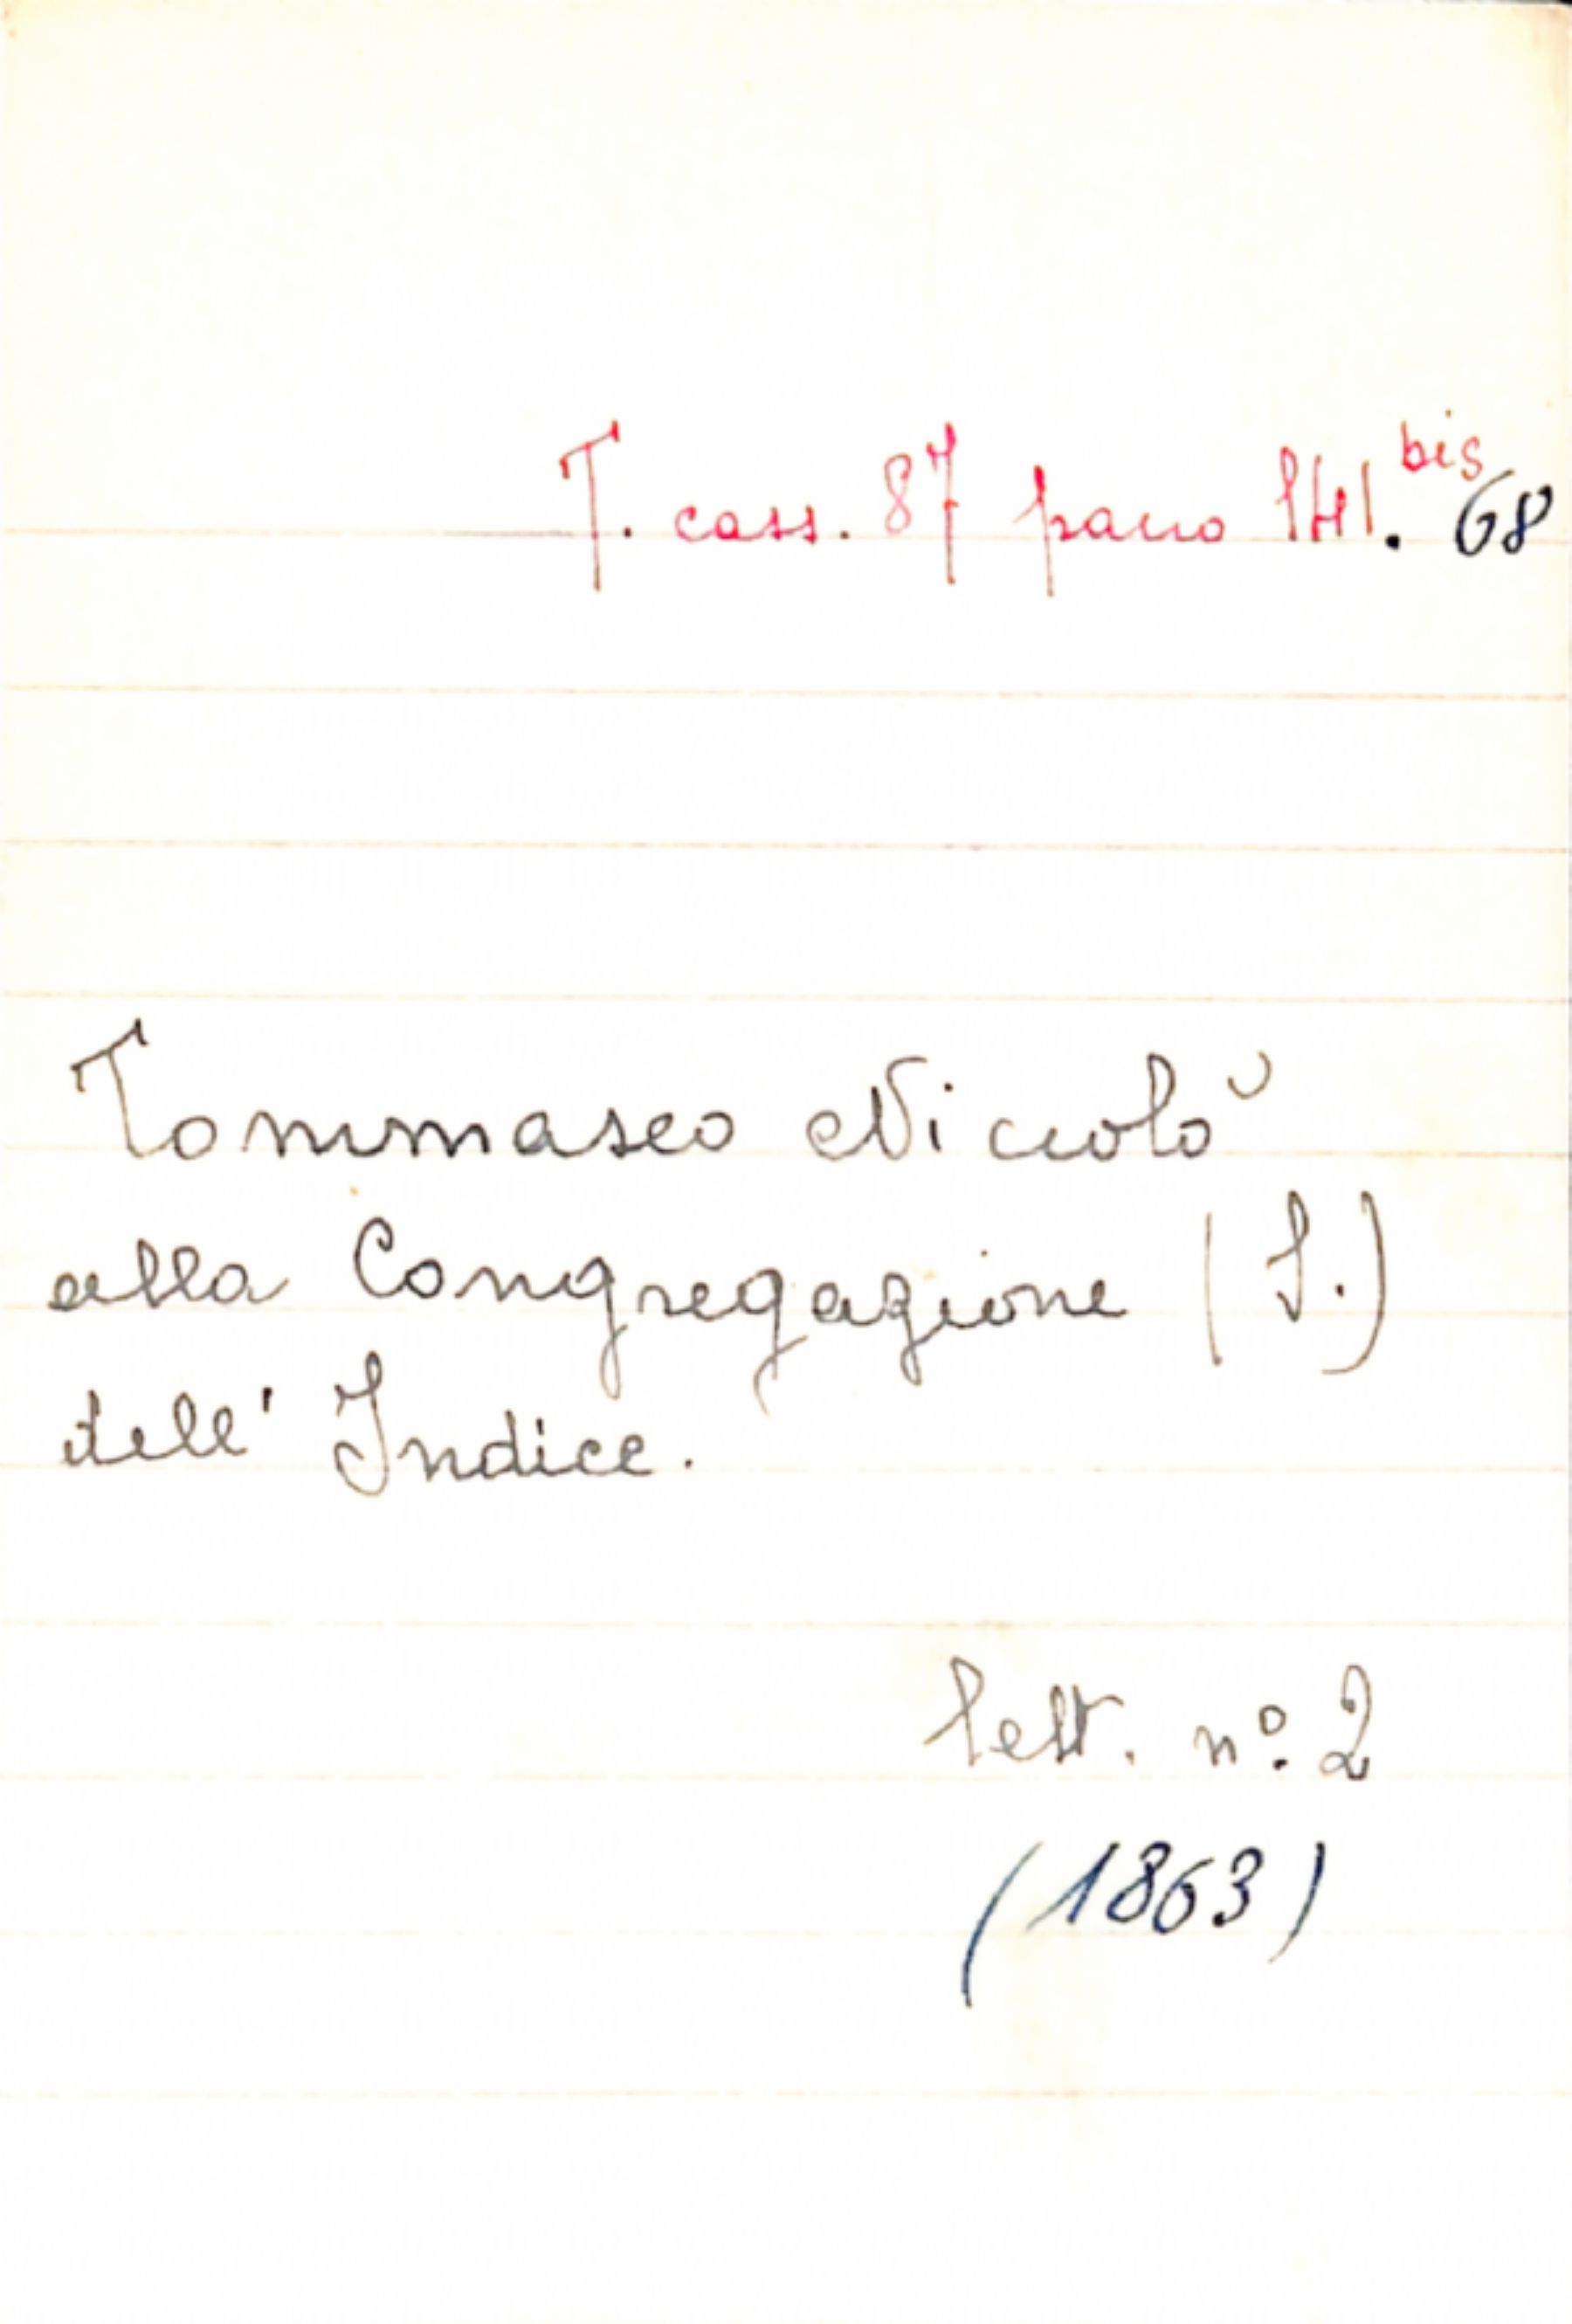 T. cass. 87 pacco 141.bis 68
Tommaseo Niccolò
alla Congregazione (S.)
dell' Indice.
lett. nº. 2
(1863)